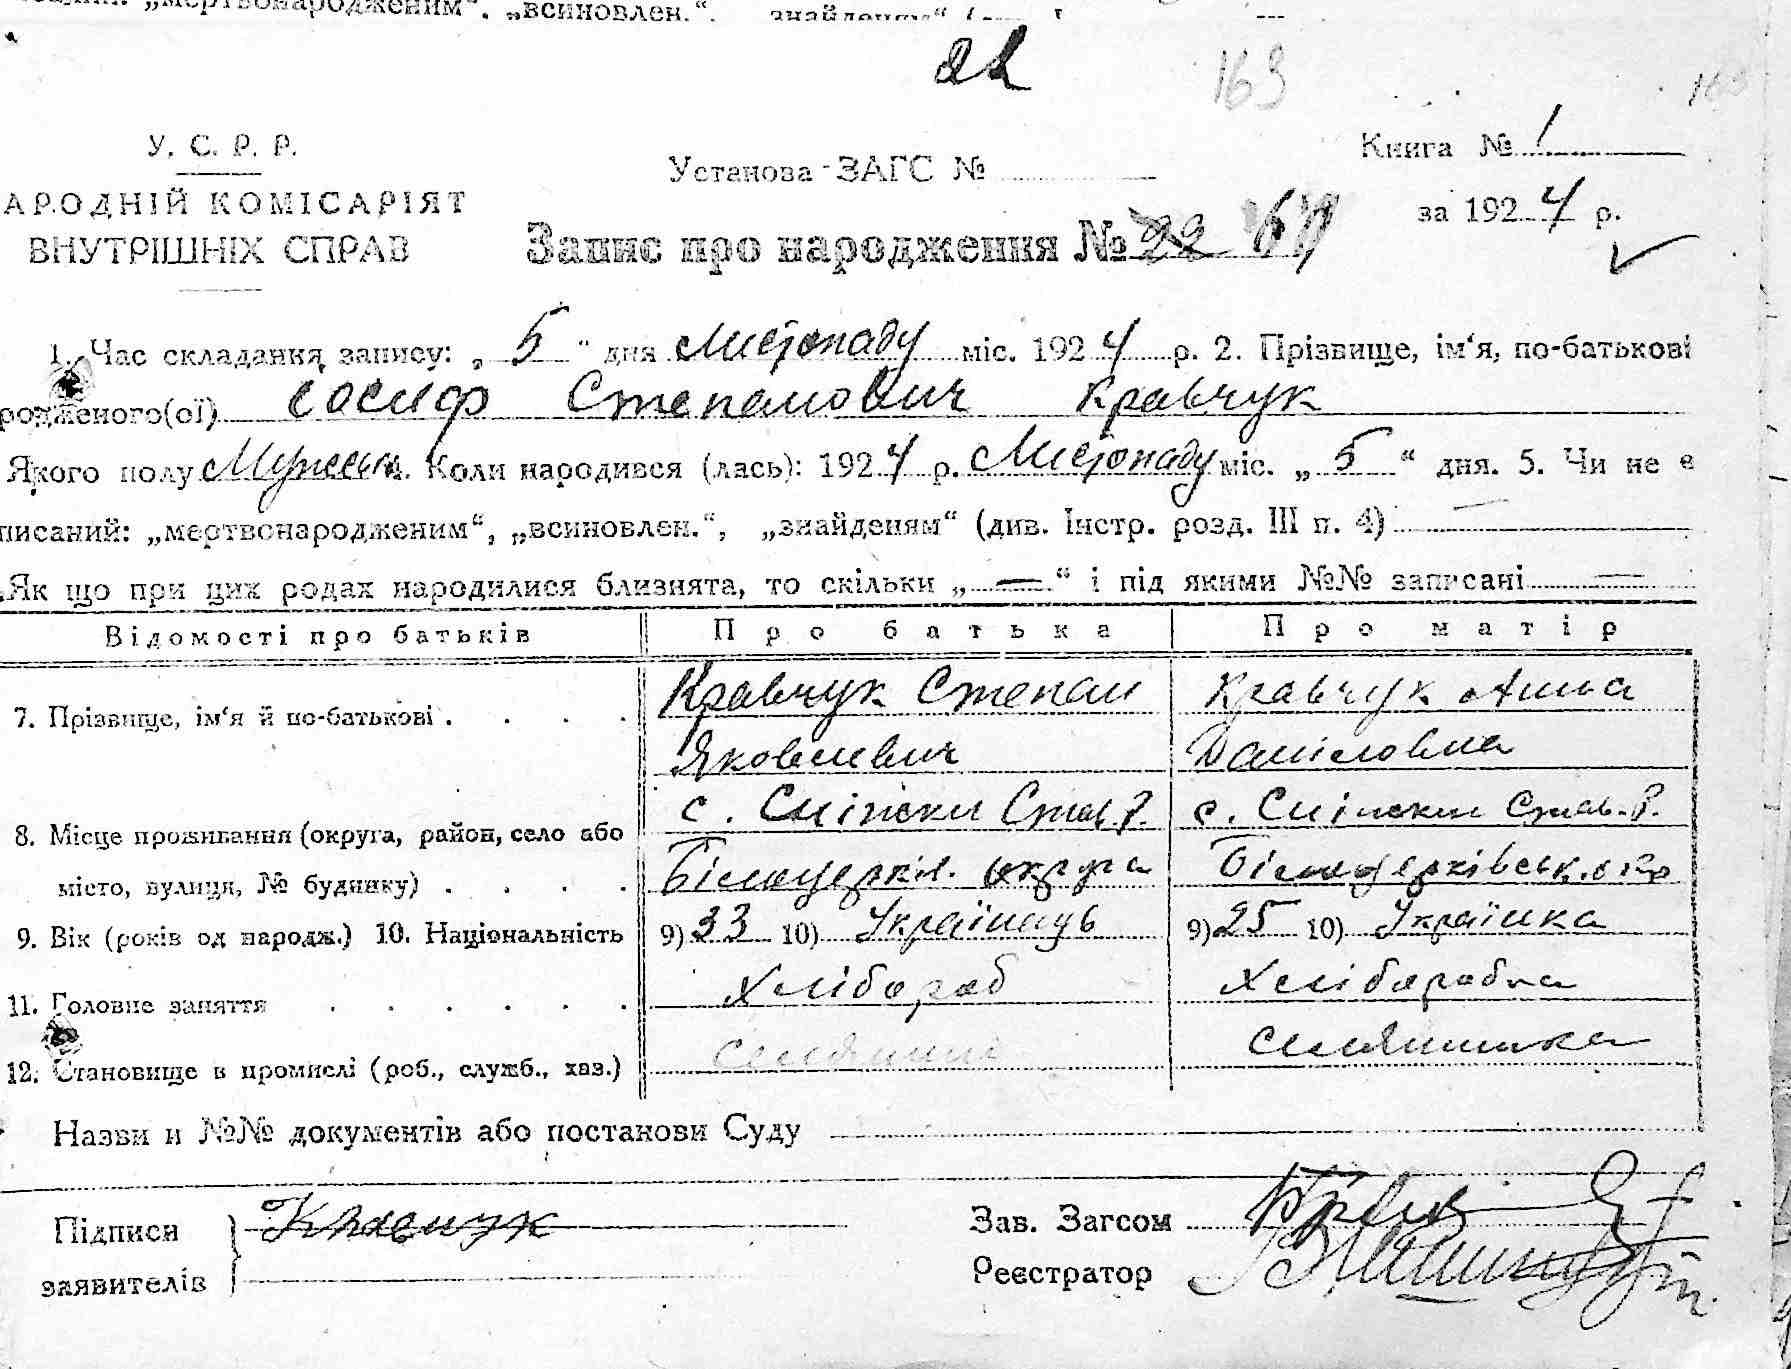 „мертвонародженим“, „всиновлен.“,
22 169
169
У. С. Р. Р.
АРОДНІЙ КОМІСАРІЯТ
ВНУТРІШНІХ СПРАВ
Установа ЗАГС №
Книга № 1
за 1924 р.
Запис про народження № 22
1. Час складання запису: „5“ дня Листопаду міс. 1924 р. 2. Прізвище, ім‘я, по-батькові
родженого(ої) Іосиф Степанович Кравчук
Якого полу Мужськ. Коли народився (лась): 1924 р. Листопаду міс. „5“ дня. 5. Чи не є
писаний: „мертвонародженим“, „всиновлен.“, „знайденям“ (див. Інстр. розд. III п. 4) —
Як що при цих родах народилися близнята, то скільки „—“ і під якими №№ записані —
Відомості про батьків Про батька Про матір
7. Прізвище, ім‘я й по-батькові . . . . Кравчук Степан Кравчук Анна
Яковлевич Даніловна
8. Місце проживання (округа, район, село або с. Сніжки Став. Р. с. Сніжки Став. Р.
місто, вулиця, № будинку) . . . . Білоцеркі. округа Білоцерківськ. окр
9. Вік (років од народж.) 10. Національність 9) 33 10) Українець 9) 25 10) Українка
11. Головне заняття . . . . . . Хлібороб Хліборобка
12. Становище в промислі (роб., служб., хаз.) селянин селянинка
Назви и №№ документів або постанови Суду
Підписи
заявителів
Кравчук
Зав. Загсом
Реєстратор